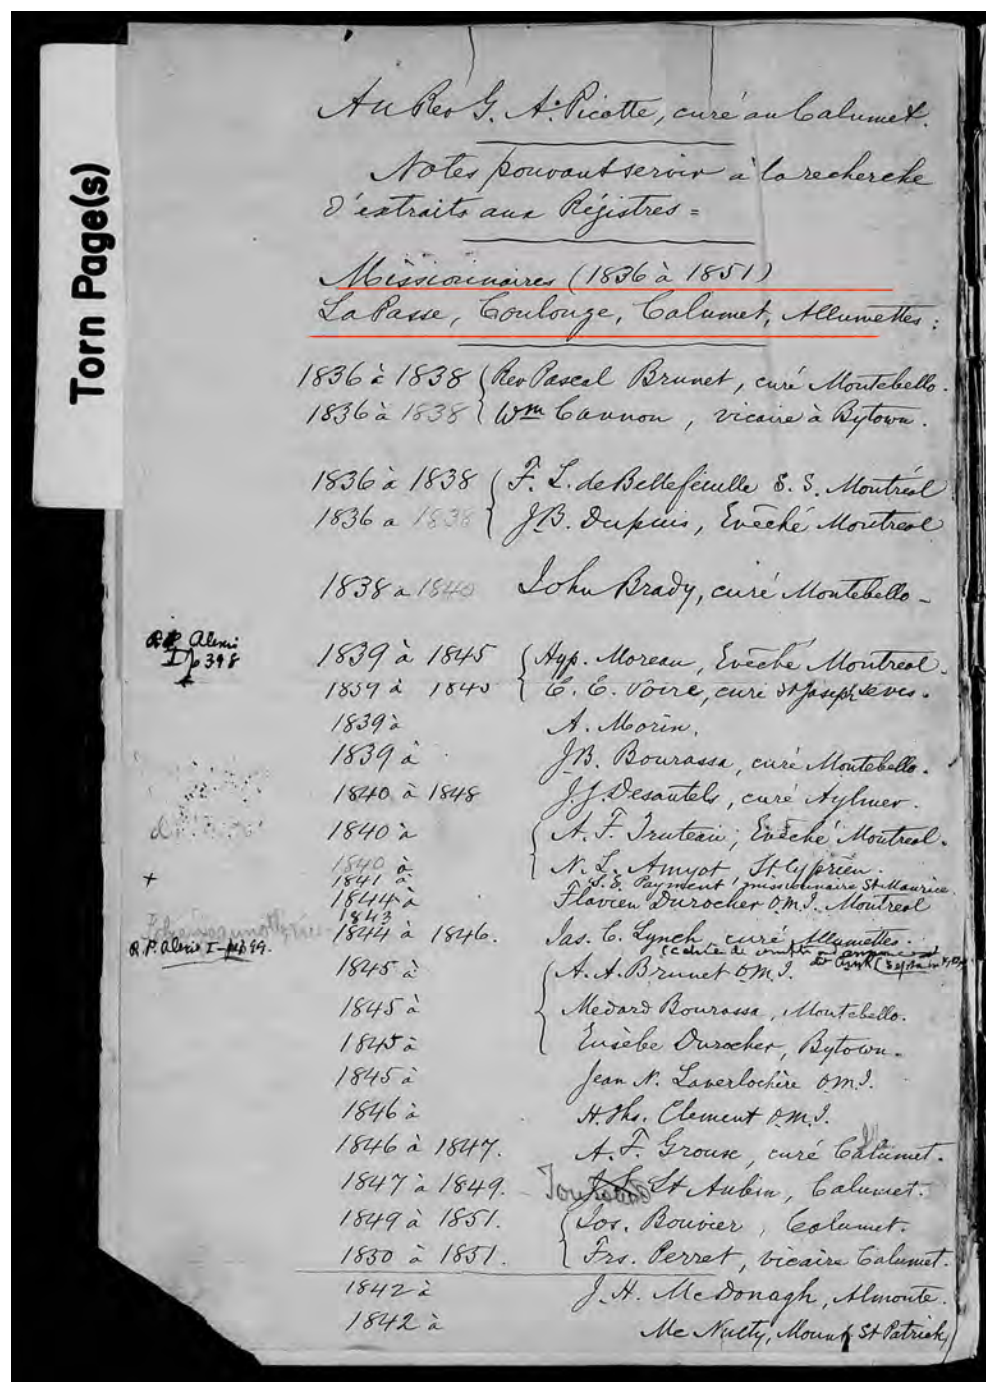 Torn Page(s)
Au Rev G. A. Picotte, curé au Calumet.
Notes pouvant servir à la recherche
d'extraits aux Régistres =
Missionnaires (1836 à 1851)
La Passe, Coulonge, Calumet, Allumettes :
1836 à 1838 { Rev Pascal Brunet, curé Montebello.
1836 à 1838 { Wm Cannon, vicaire à Bytown.
1836 à 1838 { F. L. de Bellefeuille S. S. Montréal
1836 a 1838 { J.B. Dupuis, Evêché Montreal
1838 a 1840 John Brady, curé Montebello -
R.P. Alexis
I p 398
1839 à 1845 { Hyp. Moreau, Evêché Montreal.
1839 à 1845 { C. E. Poiré, curé St Joseph Levis.
1839 à A. Morin.
1839 à J.B. Bourassa, curé Montebello.
1840 à 1848 J.J. Desautels, curé Aylmer.
1840 à { A. F. Truteau, Evêché Montreal.
1840 à { N. L. Amyot, St Cyprien.
+ 1841 à S. S. Payment, missionnaire St Maurice.
1844 à Flavien Durocher O.M.I. Montreal
1843
1844 à 1846. Jas. C. Lynch, curé Allumettes.
R. P. Alexis I - p 299.
1845 à { A. A. Brunet O.M.I.
1845 à { Medard Bourassa, Montebello.
1845 à { Eusèbe Durocher, Bytown.
1845 à Jean N. Laverlochère O.M.I.
1846 à H. Ths. Clement O.M.I.
1846 à 1847. A. F. Groux, curé Calumet.
1847 à 1849. St Aubin, Calumet.
1849 à 1851. { Jos. Bouvier, Calumet.
1850 à 1851. { Frs. Perret, vicaire Calumet.
1842 à J. H. McDonagh, Almonte.
1842 à Mc Nulty, Mount St Patrick